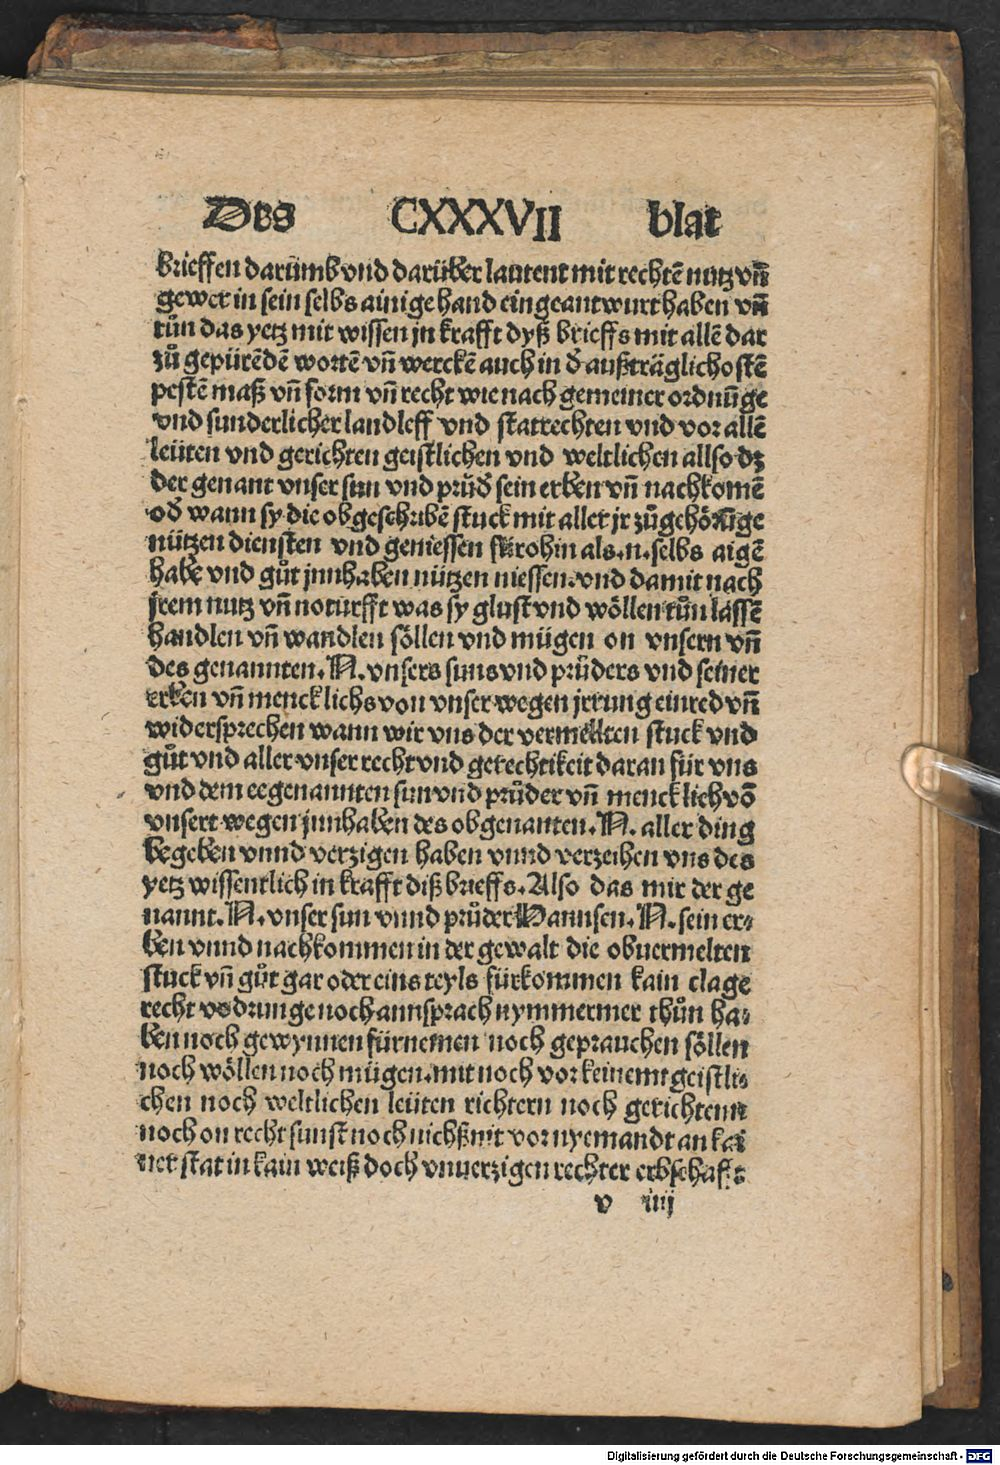 Das CXXXVII blat
brieffen darumb vnd darüber lautent mit rechtē nutz vñ
gewer in sein selbs ainige hand eingeantwurt haben vñ
tůn das yetz mit wissen jn krafft dyß brieffs mit allē dar
zů gepürēdē wortē vñ werckē auch in d̕ außträglichostē
pestē maß vñ form vñ recht wie nach gemeiner ordnūge
vnd sunderlicher landleff vnd statrechten vnd vor allē
leüten vnd gerichten geistlichen vnd weltlichen allso dz
der genant vnser sun vnd průd̕ sein erben vñ nachkomē
od̕ wann sy die obgeschribē stuck mit aller jr zůgehörūge
nützen diensten vnd geniessen fürohin als.n.selbs aigē
habe vnd gůt jnnhaben nützen niessen.vnd damit nach
jrem nutz vñ noturfft was sy glust vnd wöllen tůn lassē
handlen vñ wandlen söllen vnd mügen on vnsern vñ
des genannten.N.vnsers suns vnd průders vnd seiner
erben vñ mencklichs von vnser wegen jrrung einred vñ
widersprechen wann wir vns der vermelten stuck vnd
gůt vnd aller vnser recht vnd gerechtikeit daran für vns
vnd dem eegenannten sun vnd průder vñ mencklich vō
vnsert wegen jnnhaben des obgenanten.N. aller ding
begeben vnnd verzigen haben vnnd verzeihen vns des
yetz wissentlich in krafft diß brieffs.Also das mir der ge
nannt.N.vnser sun vnnd průder Hannsen.N.sein er⸗
ben vnnd nachkommen in der gewalt die obuermelten
stuck vñ gůt gar oder eins teyls fürkommen kain clage
recht vodrunge noch annsprach nymmermer thůn ha⸗
ben noch gewynnen fürnemen noch geprauchen söllen
noch wöllen noch mügen.mit noch vor keinem geistli⸗
chen noch weltlichen leüten richtern noch gerichtenn
noch on recht sunst noch nichß mit vor nyemandt an kai
ner stat in kain weiß doch vnuerzigen rechter erbschafft
v iiij
Digitalisierung gefördert durch die Deutsche Forschungsgemeinschaft - DFG